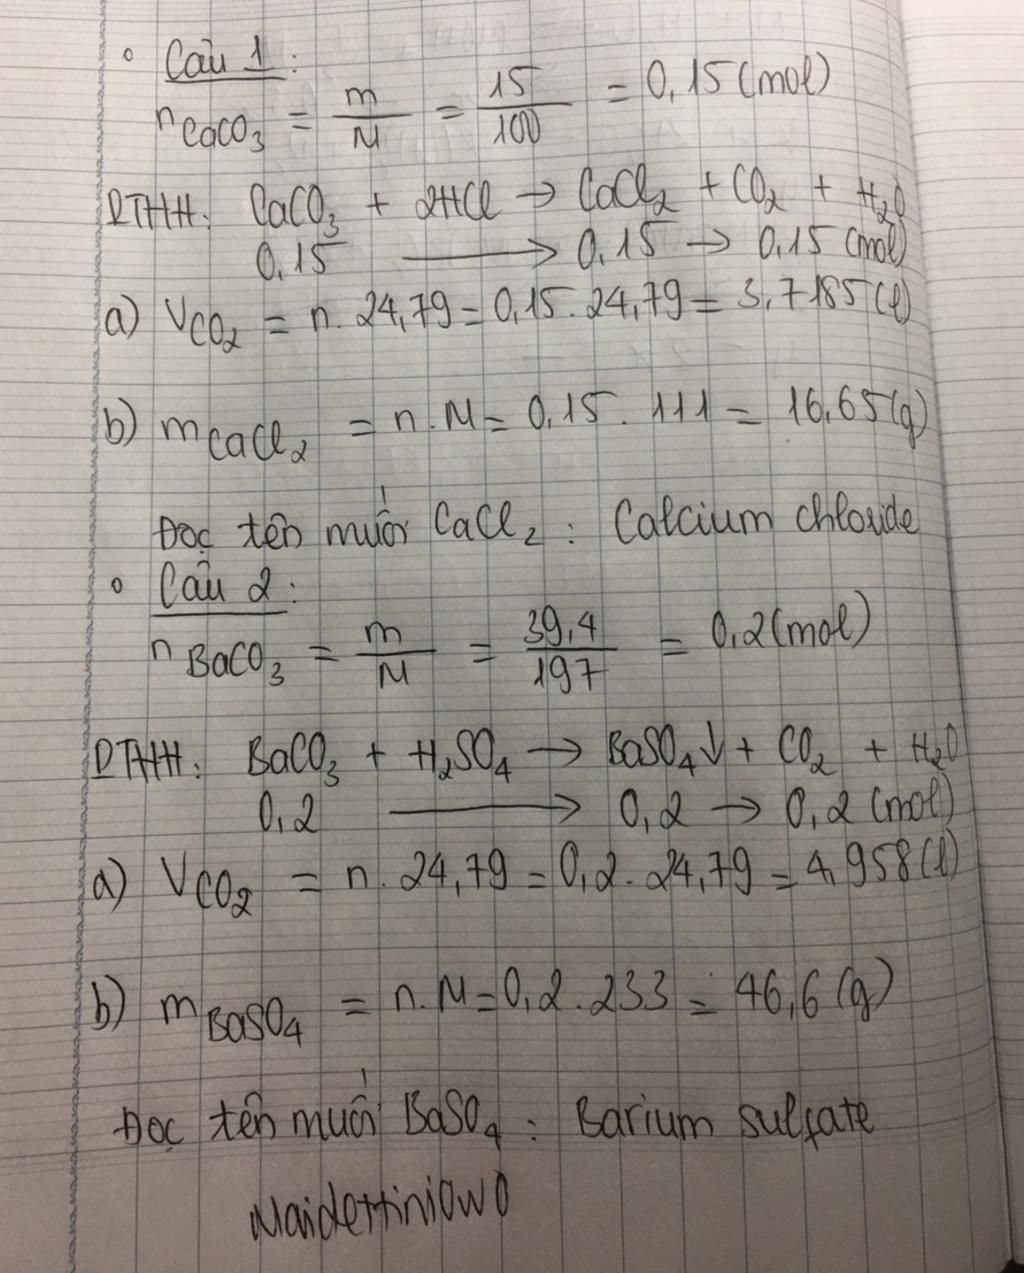 Câu 1:
nCaCO₃ = m/M = 15/100 = 0,15 (mol)
PTHH: CaCO₃ + 2HCl → CaCl₂ + CO₂ + H₂O
0,15 → 0,15 → 0,15 (mol)
a) VCO₂ = n. 24,79 = 0,15. 24,79 = 3,7185 (l)
b) mCaCl₂ = n.M = 0,15. 111 = 16,65 (g)
Đọc tên muối CaCl₂ : Calcium chloride
Câu 2:
nBaCO₃ = m/M = 39,4/197 = 0,2 (mol)
PTHH: BaCO₃ + H₂SO₄ → BaSO₄↓ + CO₂ + H₂O
0,2 → 0,2 → 0,2 (mol)
a) VCO₂ = n. 24,79 = 0,2. 24,79 = 4,958 (l)
b) mBaSO₄ = n.M = 0,2.233 = 46,6 (g)
Đọc tên muối BaSO₄ : Barium sulfate